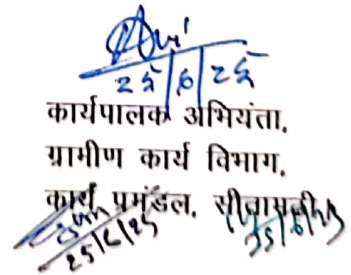 25/6/25
कार्यपालक अभियंता,
ग्रामीण कार्य विभाग,
कार्य प्रमंडल, सीतामढ़ी
25/6/25